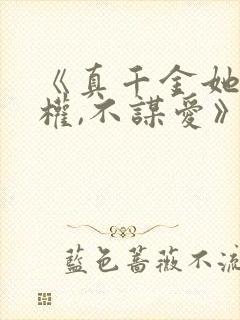 《真千金她
權,不謀愛》
藍色薔薇不流